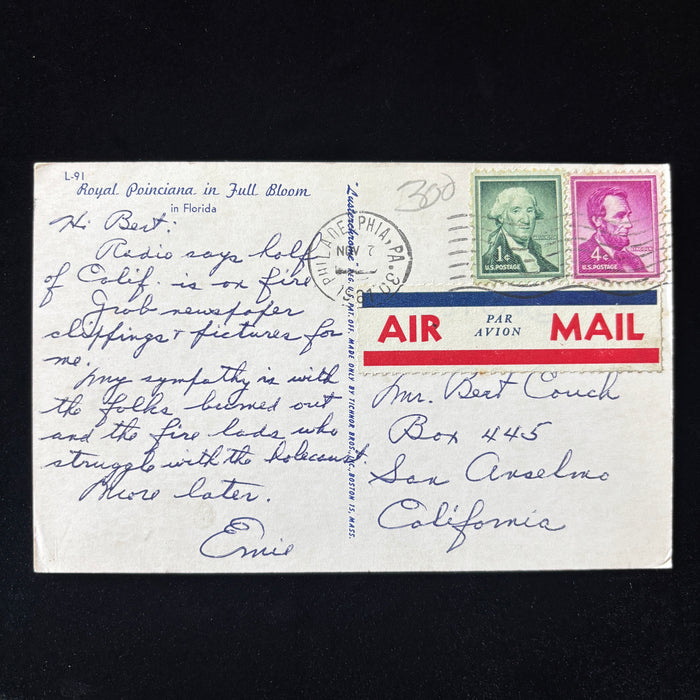 L-91
Royal Poinciana in Full Bloom
in Florida
Hi Bert:
Radio says half
of Calif. is on fire
Grab newspaper
clippings + pictures for
me.
My sympathy is with
the folks burned out
and the fire lads who
struggle with the holocaust.
More later.
Ernie
"Lusterchrome" REG. U.S. PAT. OFF. MADE ONLY BY TICHNOR BROS., INC., BOSTON 15, MASS.
300
PHILADELPHIA, PA.
NOV 7
1961
1¢
U.S. POSTAGE
4¢
U.S. POSTAGE
AIR PAR AVION MAIL
Mr. Bert Couch
Box 445
San Anselmo
California